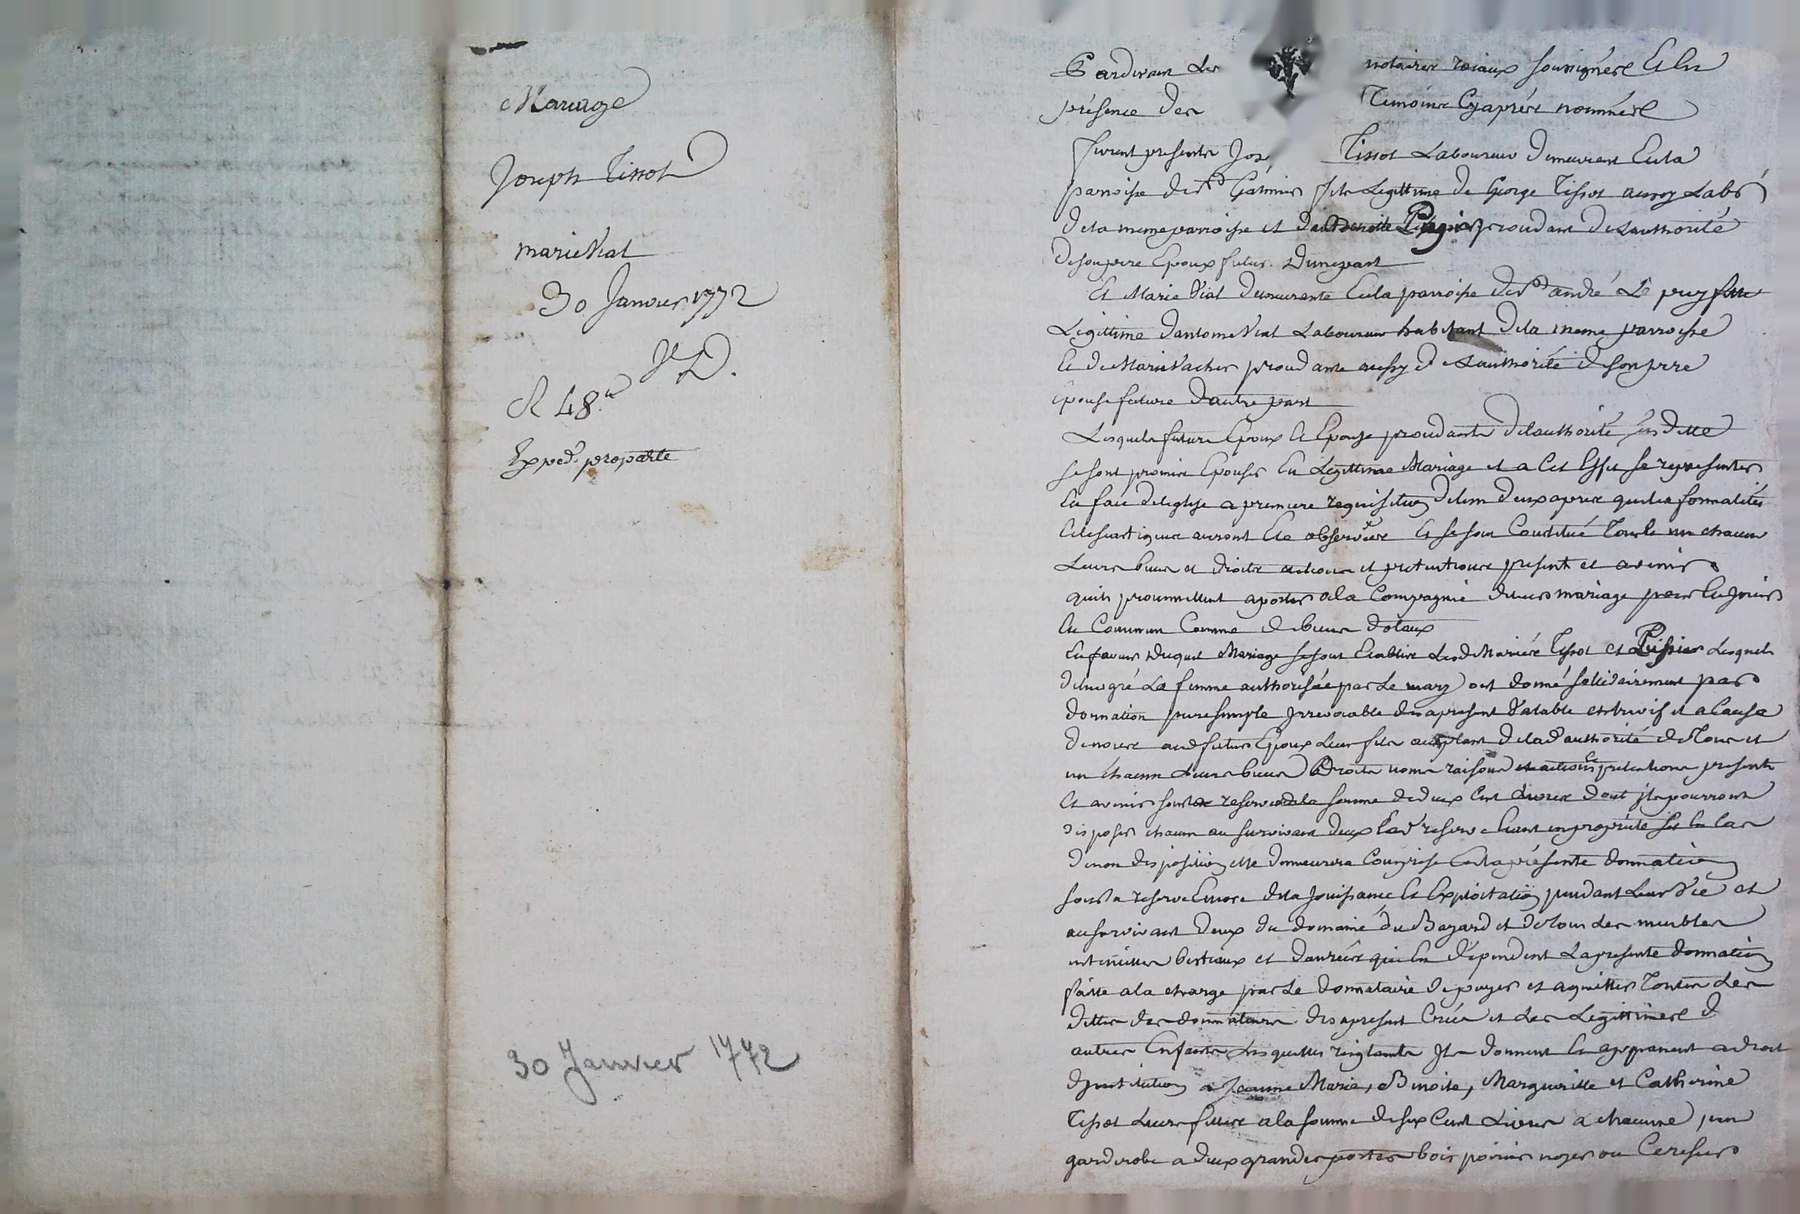 Mariage
Joseph Tissot
marie Vial
30 Janvier 1772
R 48
Exped. pro parte
30 Janvier 1772
Pardevant Les notaires roiaux soussignéès Et En
présence des Temoins Cyaprès nommées
furent presents Jos Tissot Laboureur demeurant Enla
parroisse de st Galmier fils Legittime de George Tissot aussy Labr
dela meme parroisse et de Benoitte Pissier procedant de Lauthorité
deson pere Epoux futur dune part
Et Marie Vial demeurante Enla parroisse de st andré Le puy fille
Legittime dantoine Vial Laboureur habitant dela meme parroisse
Et de Marie Vacher procedante aussy de Lauthorité de son pere
Epouse future dautre part
Lesquels futurs Epoux Et Epouse procedants delauthorité susditte
se sont promis Epouser En Legittime Mariage et a Cet Effet se representer
En face de leglise a premiere requisition delun deux apres que les formalités
auront Ete observées Et se sont Constitué Tous Et un chacun
Leurs biens et droits actions et pretentions presents et avenir
quils promettent aporter ala Compagnie duur mariage pour En Jouir
En Commun Comme de biens dotaux
En faveur Duquel Mariage se sont Etablis Lesd Mariés Tissot et Pissier Lesquels
de leur gré La femme authorisée par Le mary ont donné sollidairement par
donnation pure simple Irrevocable des apresent Valable entrevifs et a Cause
de noces aud futur Epoux Leur fils acceptant de lad authorité de Tous et
un chacun Leurs biens Droits noms raisons et actions pretentions presents
Et avenir sous la reserve de la somme de deux Cent Livres dont ils pourront
disposer chacun au survivant deux Lad reserve Etant en propriété Et En Cas
de non disposition elle demeurera Comprise En la présente donnation
sous la reserve Encore dela Jouissance Et Exploitation pendant Leur Vie et
au survivant deux du domaine du Bazard et de Tous Les meubles
bestiaux et danrées qui En dependent La presente donnation
faitte ala charge par Le donnataire de payer et aquitter Toutes Les
dettes des donnateurs des apresent Créés et des Legittimes d
autres Enfants Lesquelles reglants Ils donnent Et apparent a droit
dinstitution a Jeanne Marie, Benoite, Margueritte et Catherine
Tissot Leurs filles a la somme de six Cent Livres a chacune une
garderobe a deux grandes portes bois poirier noyer ou Cerisier